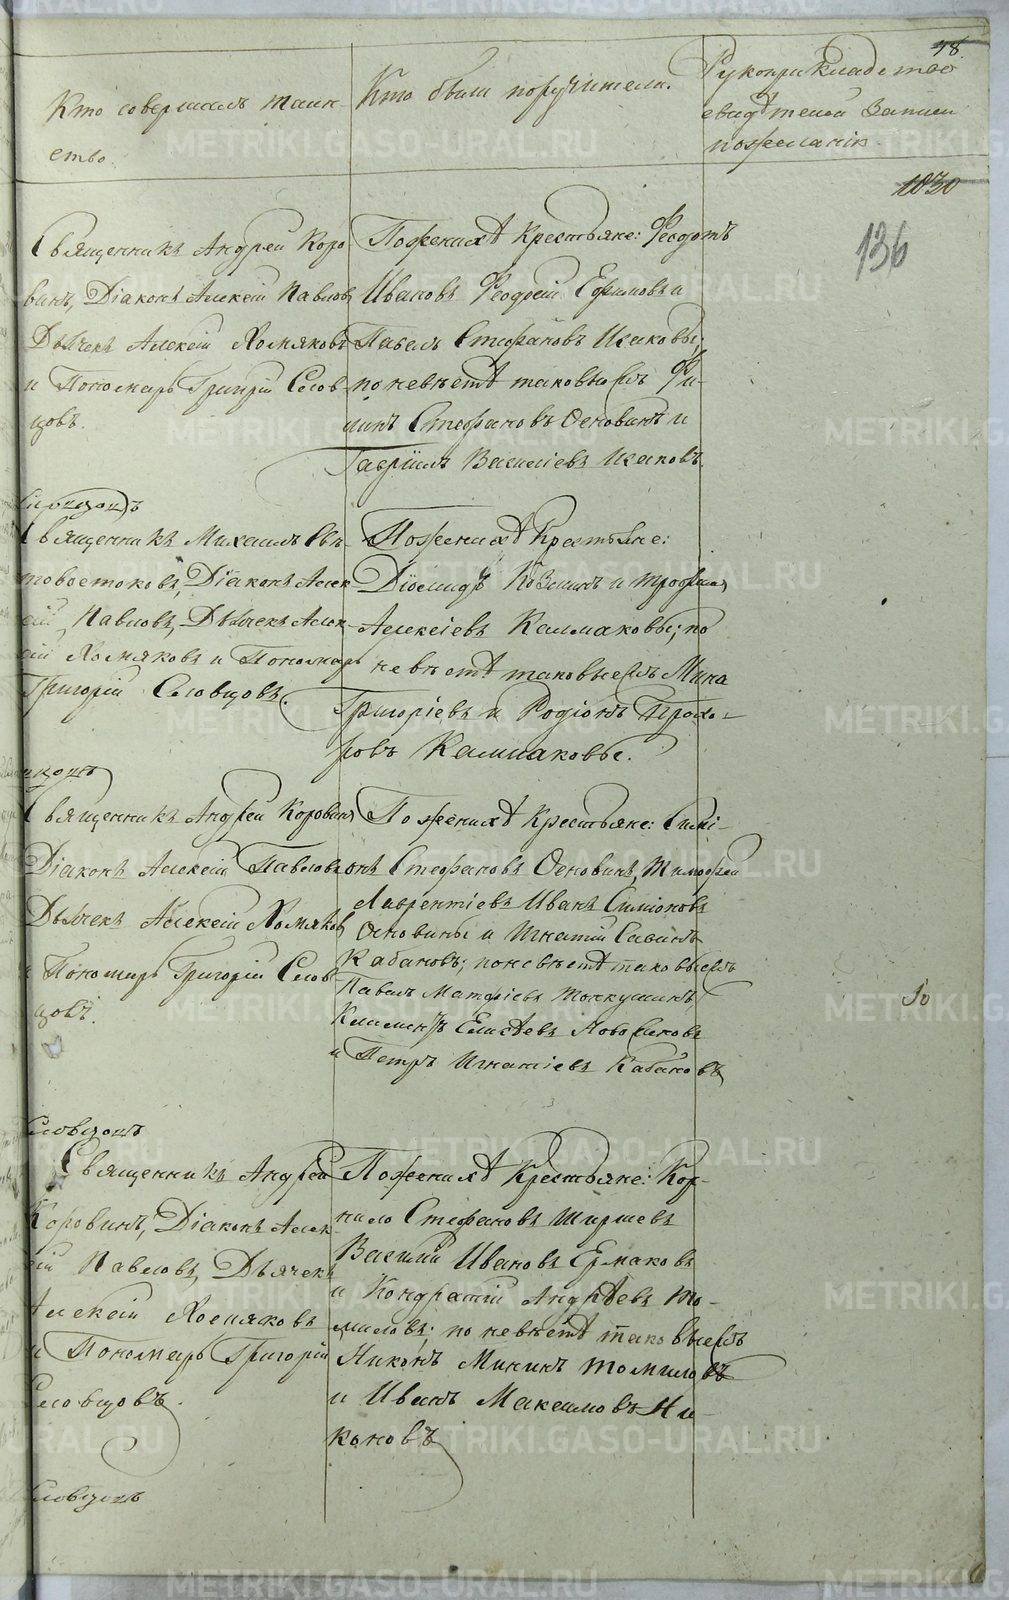 48.
Кто совершалъ таин-
ство.
Кто были поручители.
Рукоприкладство
свидѣтелей записи
по желанію.
1030
136
Священникъ Андрей Коро-
винъ, Діаконъ Алексій Павловъ,
Дьячекъ Алексій Хомяковъ
и Пономарь Григорій Слов-
цовъ.
По женихѣ Крестьяне: Феодотъ
Ивановъ Феодосій Ефимовъ и
Павелъ Стефановъ Исаковы;
по невѣстѣ таковыежъ Фи-
липъ Стефановъ Основинъ и
Гавріилъ Василіевъ Исаковъ.
Словцовъ
Священникъ Михаилъ Свѣ-
товостоковъ, Діаконъ Алек-
сій Павловъ, Дьячекъ Алек-
сій Хомяковъ и Пономарь
Григорій Словцовъ.
По женихѣ Крестьяне:
Діомидъ Козминъ и Трофимъ
Алексіевъ Калмаковы; по
невѣстѣ таковыежъ Мина
Григоріевъ и Родіонъ Прохо-
ровъ Калмаковы.
Словцовъ
Священникъ Андрей Коровинъ
Діаконъ Алексій Павловъ
Дьячекъ Алексій Хомяковъ
и Пономарь Григорій Слов-
цовъ.
По женихѣ Крестьяне: Симі-
онъ Стефановъ Основинъ, Тимофей
Лаврентіевъ Иванъ Симіоновъ
Основины и Игнатій Савинъ
Кабановъ; по невѣстѣ таковыежъ
Павелъ Матѳіевъ Токкушинъ,
Климентъ Елисѣевъ Новоселовъ
и Петръ Игнатіевъ Кабановъ
10
Словцовъ
Священникъ Андрей
Коровинъ, Діаконъ Алек-
сій Павловъ, Дьячекъ
Алексій Хомяковъ
и Пономарь Григорій
Словцовъ.
По женихѣ Крестьяне: Кор-
нило Стефановъ Ширшевъ
Василій Ивановъ Ермаковъ
и Кондратій Андрѣевъ То-
миловъ; по невѣстѣ таковыежъ
Никонъ Мининъ Томиловъ
и Иванъ Максимовъ Ни-
коновъ
Словцовъ